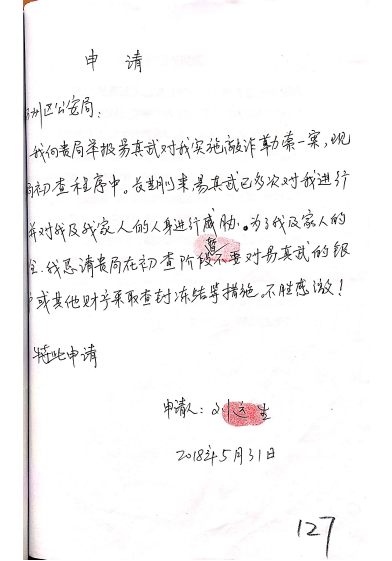 申 请
圳区公安局:
我向贵局举报易真武对我实施敲诈勒索一案,现
初查程序中。长期以来,易真武已多次对我进行
并对我及我家人的人身进行威胁。为了我及家人的
我恳请贵局在初查阶段不要对易真武的银
或其他财产采取查封冻结等措施。不胜感激!
特此申请
申请人:刘 生
2018年5月31日
127